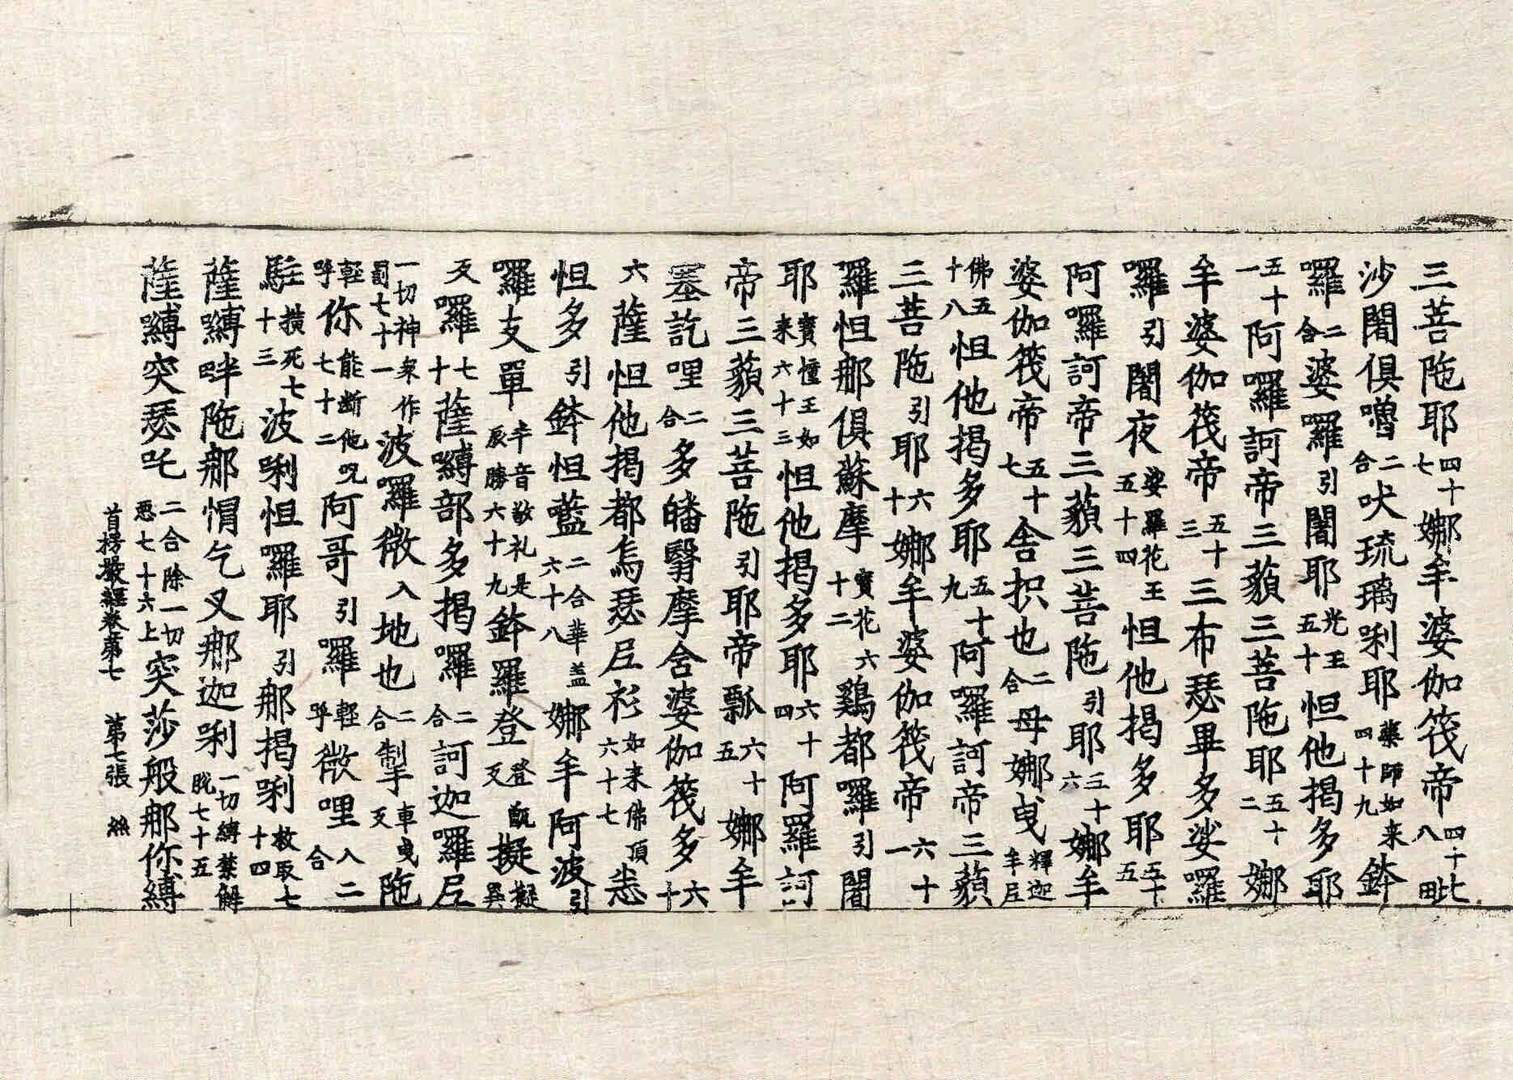 三菩陁耶四十七娜牟婆伽筏帝四十八毗
沙闍俱嚕二合吠琉璃唎耶藥師如来四十九鉢
囉二合婆囉引闍耶光王五十怛他揭多耶
五十一阿囉訶帝三藐三菩陁耶五十二娜
牟婆伽筏帝五十三三布瑟畢多娑囉
囉引闍夜娑羅花王五十四怛他揭多耶五十五
阿囉訶帝三藐三菩陁引耶三十六娜牟
婆伽筏帝五十七舍抧也二合母娜曳釋迦牟尼
佛五十八怛他揭多耶五十九阿囉訶帝三藐
三菩陁引耶六十娜牟婆伽筏帝六十一
羅怛那俱蘇摩寶花六十二鷄都囉引闍
耶寶憧王如来六十三怛他揭多耶六十四阿羅訶
帝三藐三菩陁引耶帝瓢六十五娜牟
塞訖哩二合多皤翳摩舍婆伽筏多六十
六薩怛他揭都烏瑟尼衫如来佛頂六十七悉
怛多引鉢怛藍二合華盖六十八娜牟阿波引
羅支單辛音敬礼是辰勝六十九鉢羅登登甑反擬擬異
反囉七十薩嚩部多揭囉二合訶迦囉尼
一切神衆作罰七十一波羅微入地也二合掣車曳反陁
輕呼你能断他呪七十二阿哥引囉輕呼微哩入二合
駐撗死七十三波唎怛囉耶引那揭唎救取七十四
薩嚩畔陁那㥜乞叉那迦唎一切縛禁解脱七十五
薩嚩突瑟吒二合除一切惡七十六上突莎般那你縛
首楞嚴經卷第七　第七張　絲